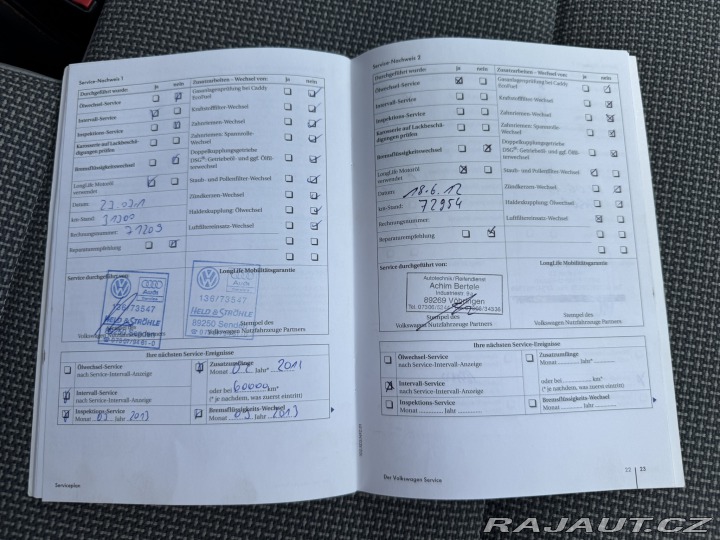 Service-Nachweis 1
Durchgeführt wurde: ja nein
Ölwechsel-Service
Intervall-Service
Inspektions-Service
Karosserie auf Lackbeschä-
digungen prüfen
Bremsflüssigkeitswechsel
LongLife Motoröl
verwendet
Datum:
km-Stand: 31300
Rechnungsnummer: 71209
Reparaturempfehlung
Zusatzarbeiten – Wechsel von: ja nein
Gasanlagenprüfung bei Caddy
EcoFuel
Kraftstofffilter-Wechsel
Zahnriemen-Wechsel
Zahnriemen: Spannrolle-
Wechsel
Doppelkupplungsgetriebe
DSG®: Getriebeöl- und ggf. Ölfil-
terwechsel
Staub- und Pollenfilter-Wechsel
Zündkerzen-Wechsel
Haldexkupplung: Ölwechsel
Luftfiltereinsatz-Wechsel
Service durchgeführt von:
LongLife Mobilitätsgarantie
Audi
Service
136/73547
Audi
Service
136/73547
HELD & STRÖHLE
89250 Senden
Stempel des
Volkswagen Nutzfahrzeuge Partners
Ihre nächsten Service-Ereignisse
Ölwechsel-Service
nach Service-Intervall-Anzeige
Intervall-Service
nach Service-Intervall-Anzeige
Inspektions-Service
Monat 03 Jahr 2013
Zusatzumfänge
Monat 02 Jahr* 2011
oder bei 60000 km*
(* je nachdem, was zuerst eintritt)
Bremsflüssigkeits-Wechsel
Monat 03 Jahr 2013
Serviceplan
Service-Nachweis 2
Durchgeführt wurde: ja nein
Ölwechsel-Service
Intervall-Service
Inspektions-Service
Karosserie auf Lackbeschä-
digungen prüfen
Bremsflüssigkeitswechsel
LongLife Motoröl
verwendet
Datum: 18.6.12
km-Stand: 72954
Rechnungsnummer:
Reparaturempfehlung
Zusatzarbeiten – Wechsel von: ja nein
Gasanlagenprüfung bei Caddy
EcoFuel
Kraftstofffilter-Wechsel
Zahnriemen-Wechsel
Zahnriemen: Spannrolle-
Wechsel
Doppelkupplungsgetriebe
DSG®: Getriebeöl- und ggf. Ölfil-
terwechsel
Staub- und Pollenfilter-Wechsel
Zündkerzen-Wechsel
Haldexkupplung: Ölwechsel
Luftfiltereinsatz-Wechsel
Service durchgeführt von:
LongLife Mobilitätsgarantie
Autotechnik/Reifendienst
Achim Bertele
89269 Vöhringen
Stempel des
Volkswagen Nutzfahrzeuge Partners
Ihre nächsten Service-Ereignisse
Ölwechsel-Service
nach Service-Intervall-Anzeige
Intervall-Service
nach Service-Intervall-Anzeige
Inspektions-Service
Monat Jahr
Zusatzumfänge
Monat Jahr*
oder bei km*
(* je nachdem, was zuerst eintritt)
Bremsflüssigkeits-Wechsel
Monat Jahr
Der Volkswagen Service
22 23
RAJAUT.CZ